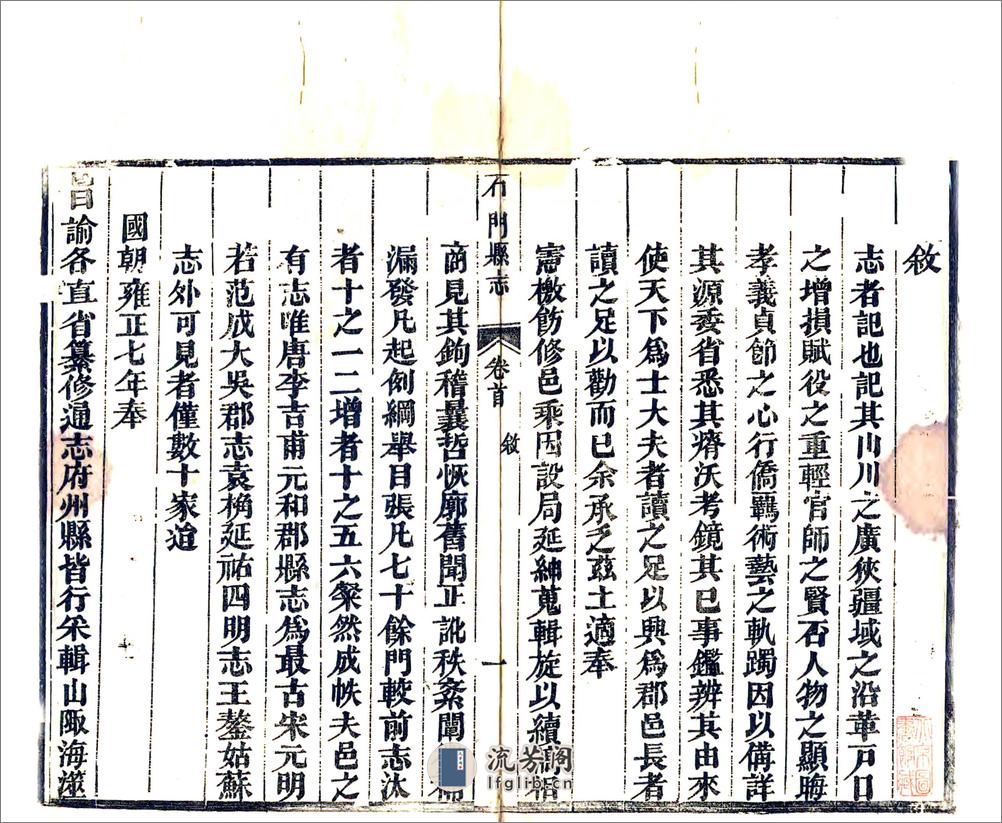 敘
志者記也記其山川之廣狹疆域之沿革戸口
之增損賦役之重輕官師之賢否人物之顯晦
孝義貞節之心行僑羈術藝之軌躅因以備詳
其源委省悉其瘠沃考鏡其已事鑑辨其由來
使天下爲士大夫者讀之足以興爲郡邑長者
讀之足以勸而已余承乏茲土適奉
憲檄飭修邑乘因設局延紳蒐輯旋以續
石門縣志
卷首
敘
一
商見其鉤稽曩哲恢廓舊聞正訛秩紊闡
漏發凡起例綱舉目張凡七十餘門較前志汰
者十之一二增者十之五六粲然成帙夫邑之
有志唯唐李吉甫元和郡縣志爲最古宋元明
若范成大吳郡志袁桷延祐四明志王鏊姑蘇
志外可見者僅數十家迨
國朝雍正七年奉
旨諭各直省纂修通志府州縣皆行采輯山陬海澨
流芳閣
lfglib.com